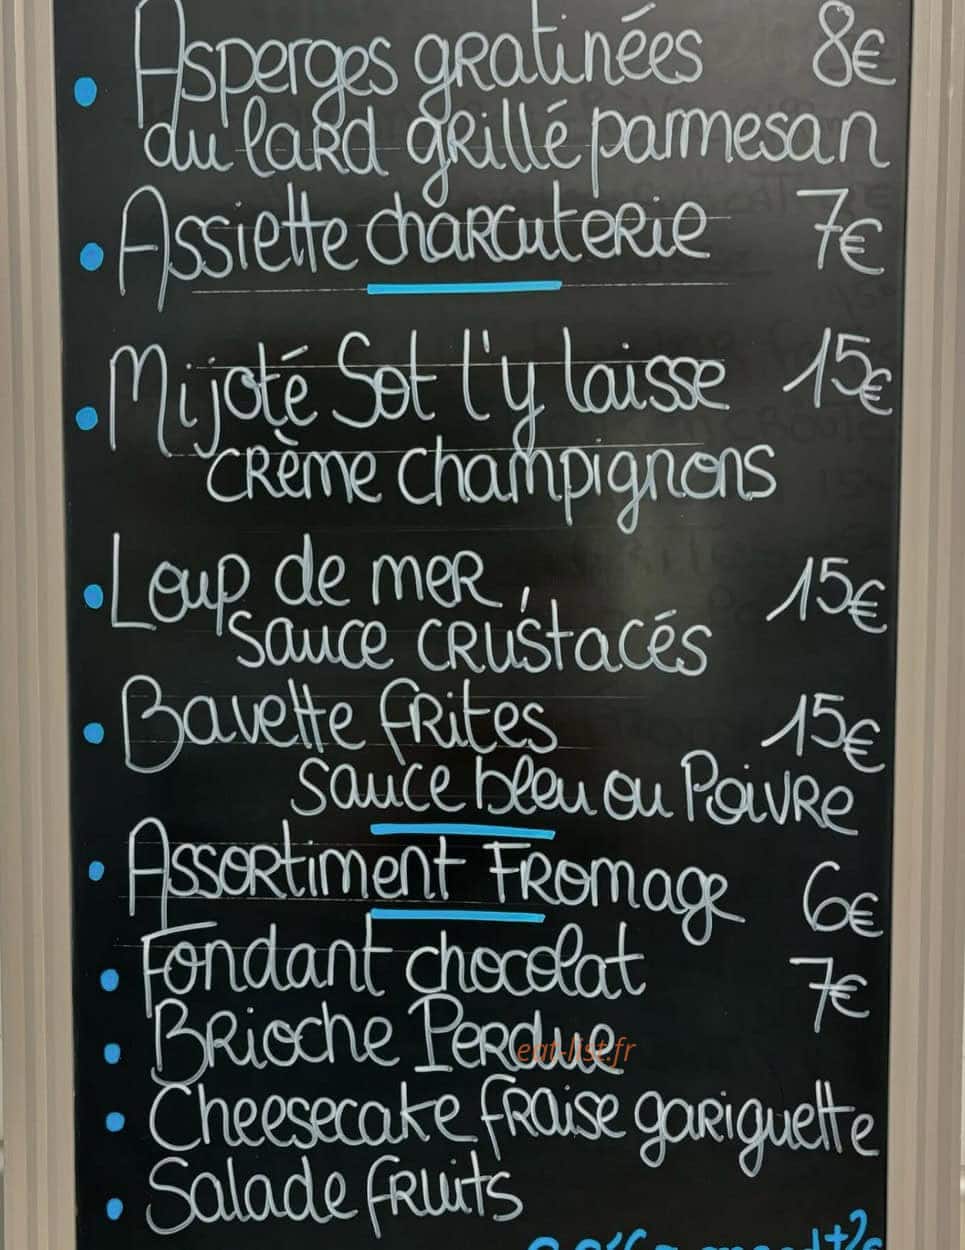 Asperges gratinées 8€
du lard grillé parmesan
Assiette charcuterie 7€
Mijoté Sot l'y laisse 15€
crème champignons
Loup de mer, 15€
sauce crustacés
Bavette frites 15€
sauce bleu ou Poivre
Assortiment Fromage 6€
Fondant chocolat 7€
Brioche Perdue
eat-list.fr
Cheesecake fraise gariguette
Salade fruits